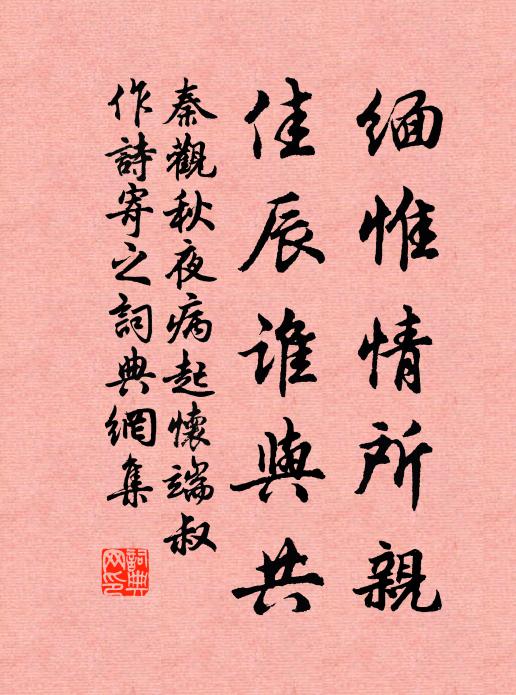 緬惟情所親
佳辰誰與共
秦觀秋夜病起懷端叔
作詩寄之詞典網集
詞典
网印